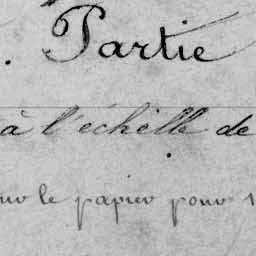 . Partie
à l'échelle de
sur le papier pour 1